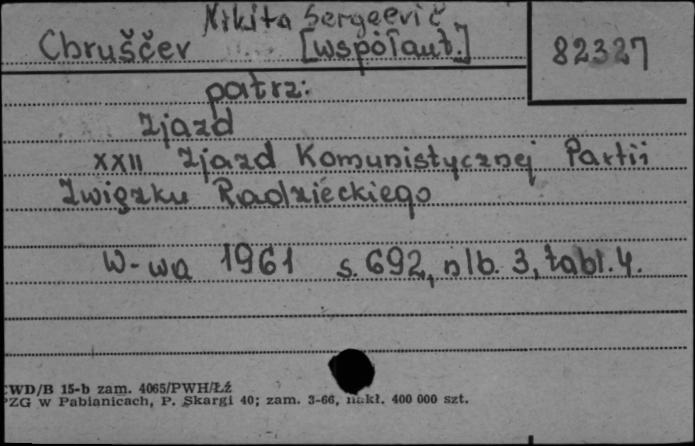 Nikita Sergeevič
Chruščev [współaut.]
82327
patrz:
Zjazd
XXII Zjazd Komunistycznej Partii
Związku Radzieckiego
W-wa 1961 s. 692, nlb. 3, tabl. 4.
CWD/B 15-b zam. 4065/PWH/Łź
PZG w Pabianicach, P. Skargi 40; zam. 3-66, nakł. 400 000 szt.